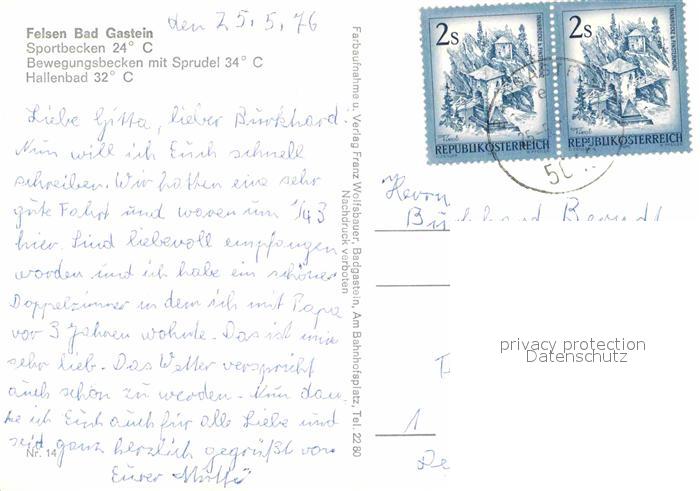 Felsen Bad Gastein
Sportbecken 24° C
Bewegungsbecken mit Sprudel 34° C
Hallenbad 32° C
den 25. 5. 76
Liebe Gitta, lieber Burkhard!
Nun will ich Euch schnell
schreiben. Wir hatten eine sehr
gute Fahrt und waren um 1/4 3
hier. Sind liebevoll empfangen
worden und ich habe ein schönes
Doppelzimmer in dem ich mit Papa
vor 3 Jahren wohnte. Das ist mir
sehr lieb. Das Wetter verspricht
auch schön zu werden. Nun dan-
ke ich Euch auch für alle Liebe und
seid ganz herzlich gegrüßt von
Eurer
Nr. 14
Farbaufnahme u. Verlag Franz Wolfsbauer, Badgastein, Am Bahnhofsplatz, Tel. 22 80
Nachdruck verboten
2s
REPUBLIK ÖSTERREICH
2s
REPUBLIK ÖSTERREICH
Herrn
Burkhard
privacy protection
Datenschutz
1